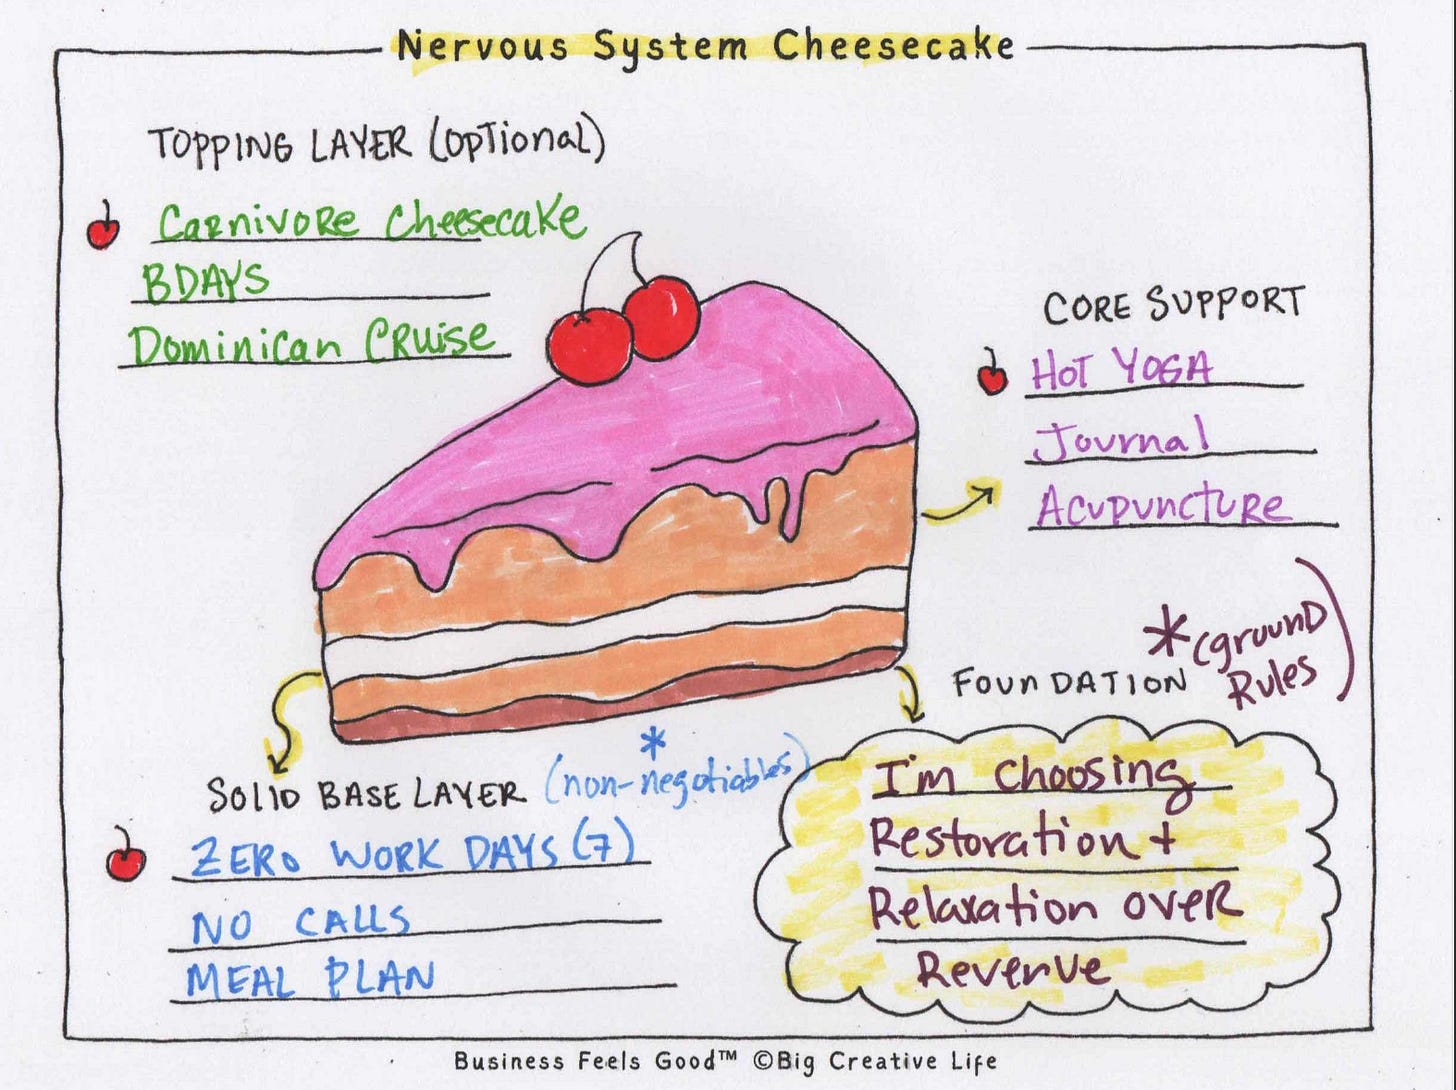 Nervous System Cheesecake
TOPPING LAYER (OPTIONAL)
Carnivore Cheesecake
BDAYS
Dominican Cruise
CORE SUPPORT
HOT YOGA
Journal
Acupuncture
FOUNDATION
*(ground
Rules)
I'm choosing
Restoration +
Relaxation over
Revenue
*
SOLID BASE LAYER (non-negotiables)
ZERO WORK DAYS (7)
NO CALLS
MEAL PLAN
Business Feels Good™ ©Big Creative Life